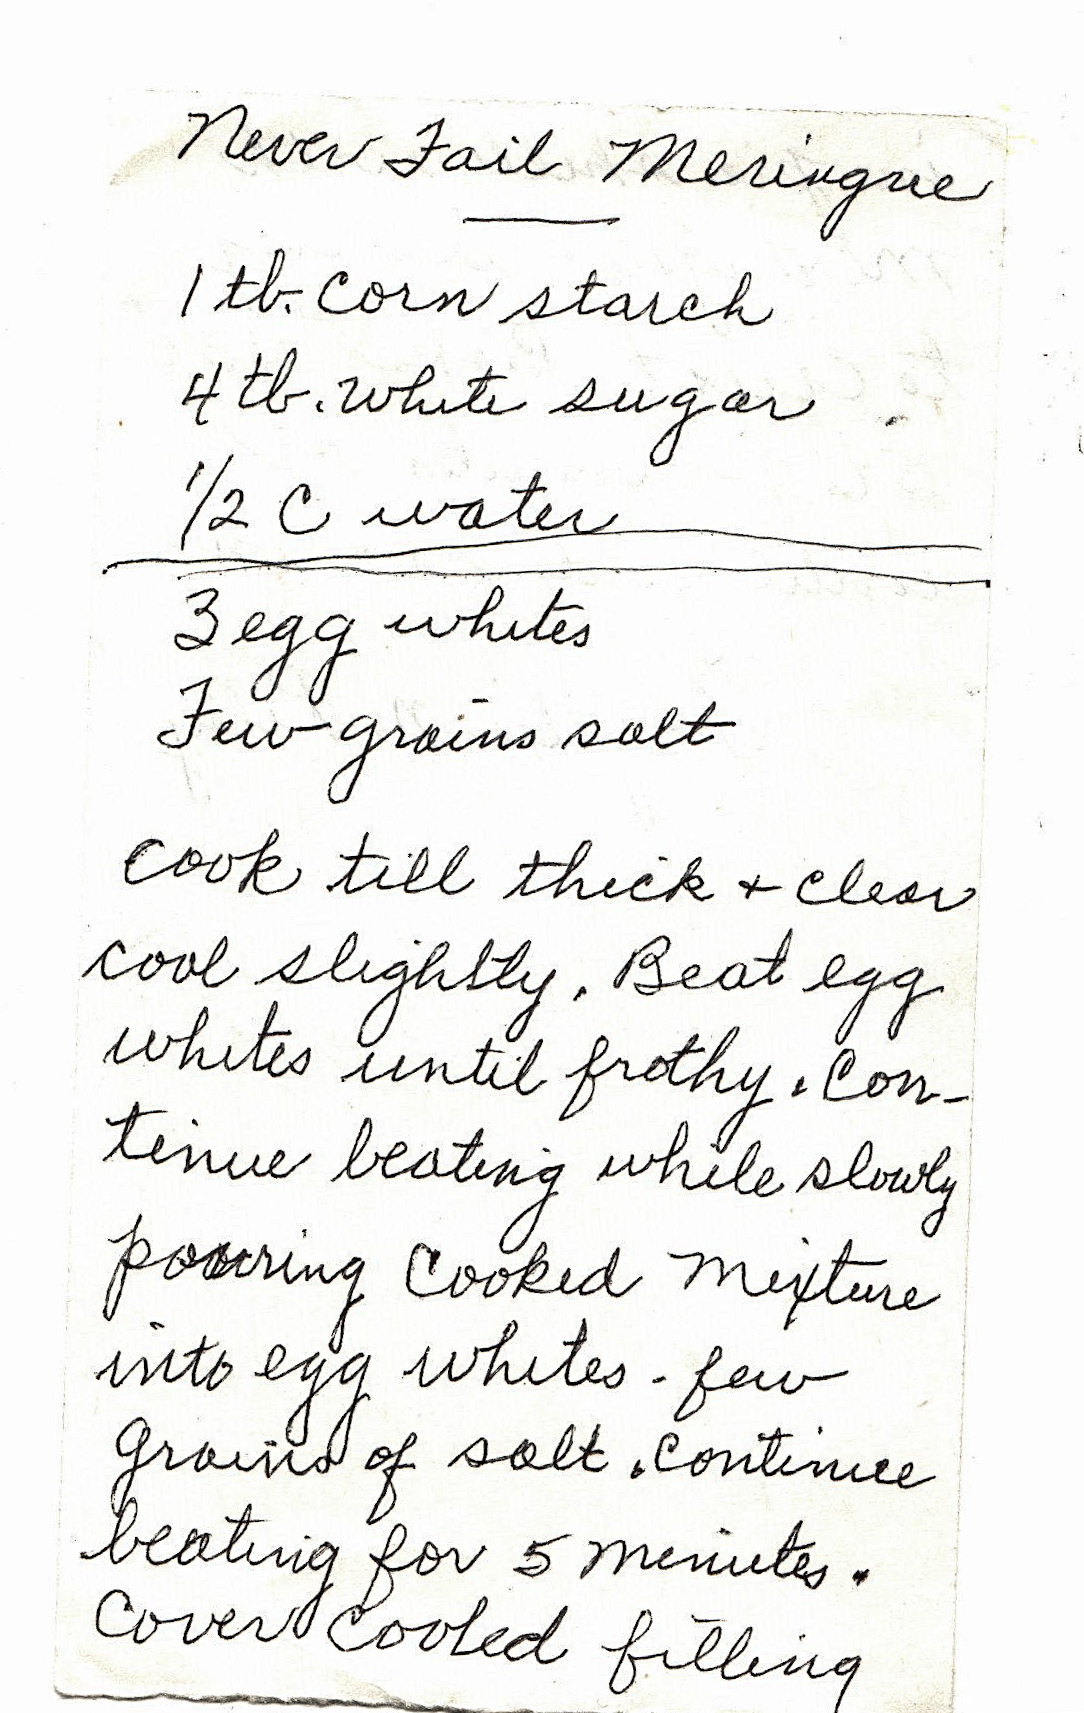 Never Fail Meringue
1 tb. corn starch
4 tb. white sugar
1/2 C water
3 egg whites
Few grains salt
Cook till thick + clear
cool slightly. Beat egg
whites until frothy. Con-
tinue beating while slowly
pouring cooked mixture
into egg whites - few
grains of salt. Continue
beating for 5 minutes.
Cover cooled filling